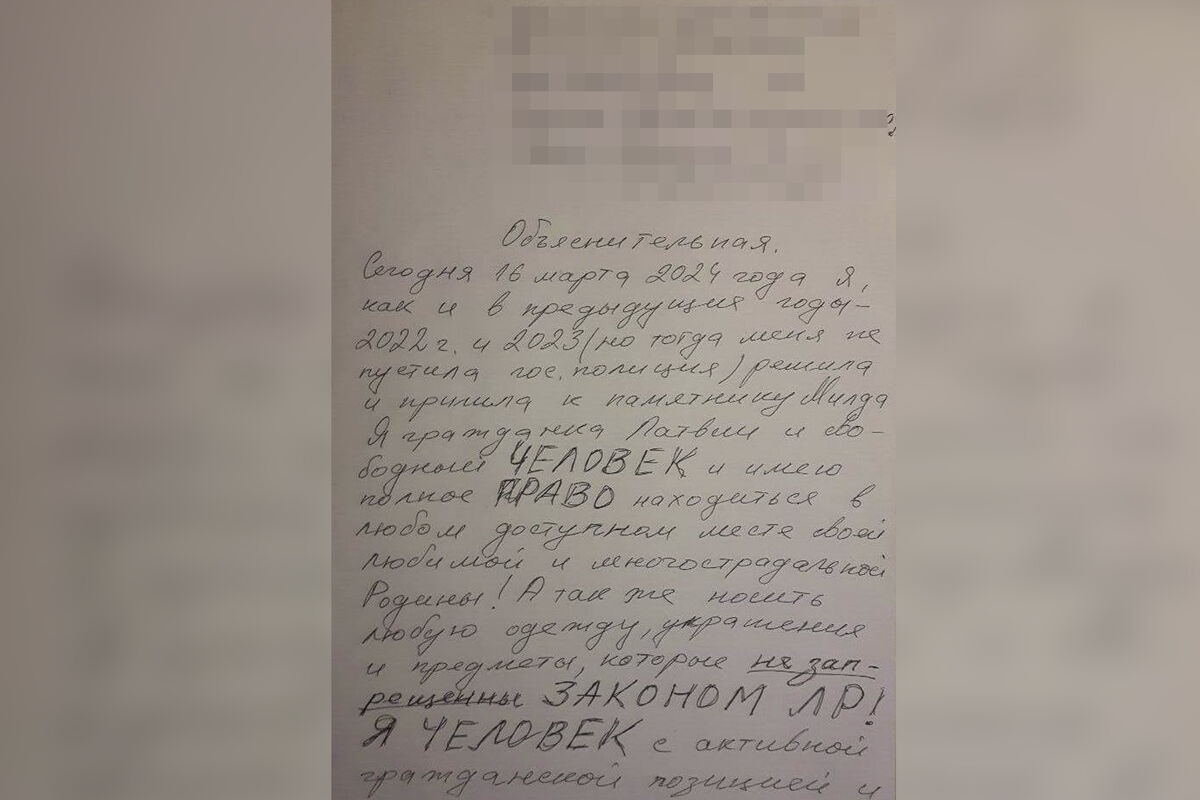 Объяснительная.
Сегодня 16 марта 2024 года я,
как и в предыдущия годы-
2022 г. и 2023 (но тогда меня не
пустила гос. полиция) решила
и пришла к памятнику Милда
Я гражданка Латвии и сво-
бодный ЧЕЛОВЕК и имею
полное ПРАВО находиться в
любом доступном месте своей
любимой и многострадальной
Родины! А так же носить
любую одежду, украшения
и предметы, которые не зап-
рещенны ЗАКОНОМ ЛР!
Я ЧЕЛОВЕК с активной
гражданской позицией и